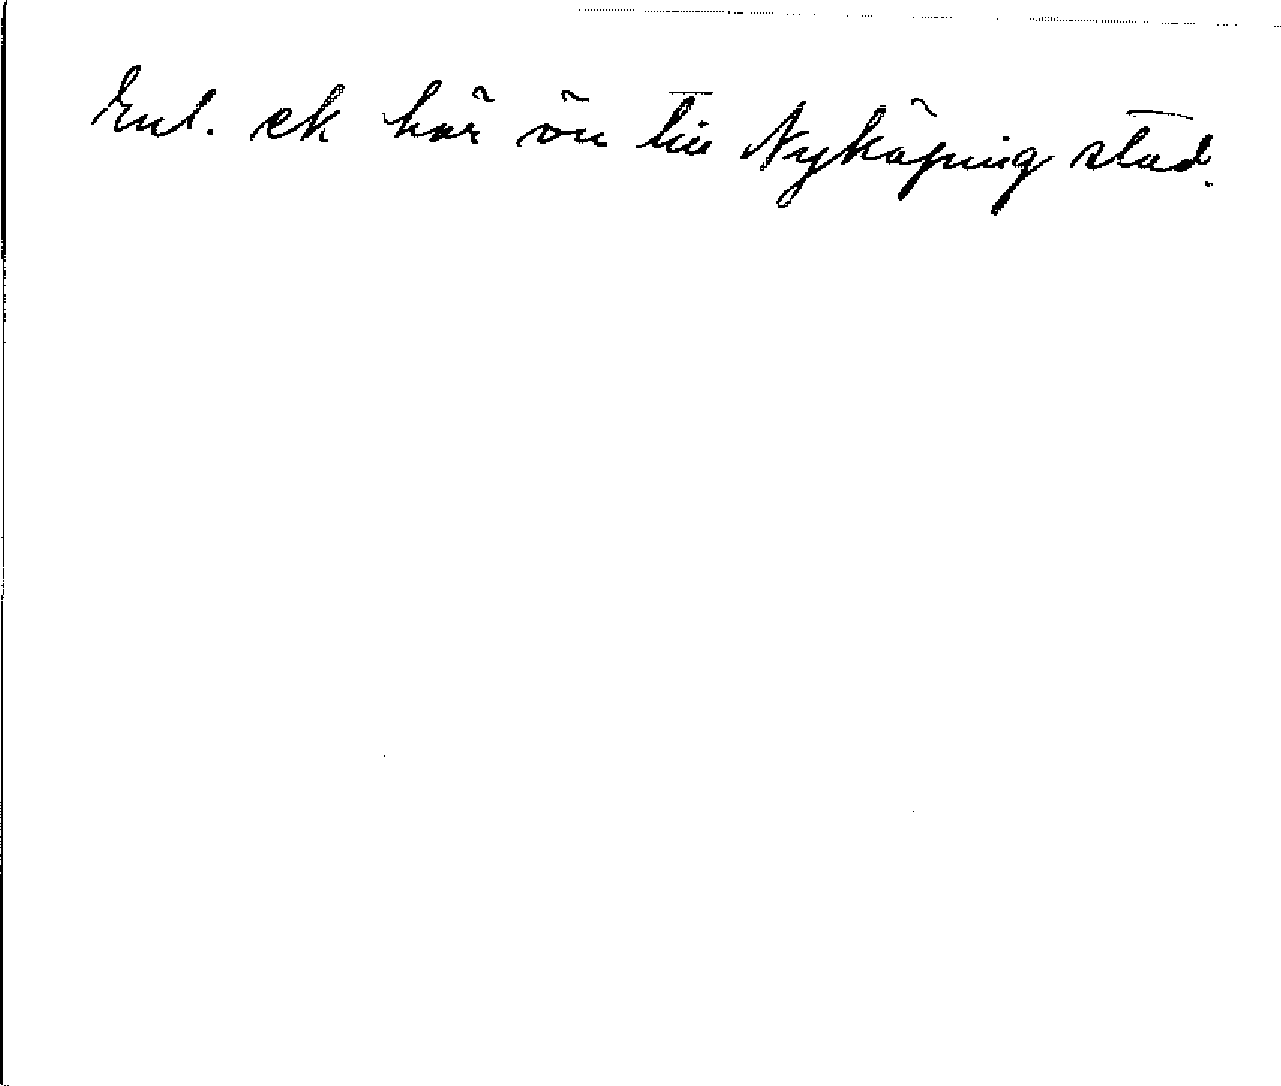 Enl. ek hör ön till Nyköping stad.